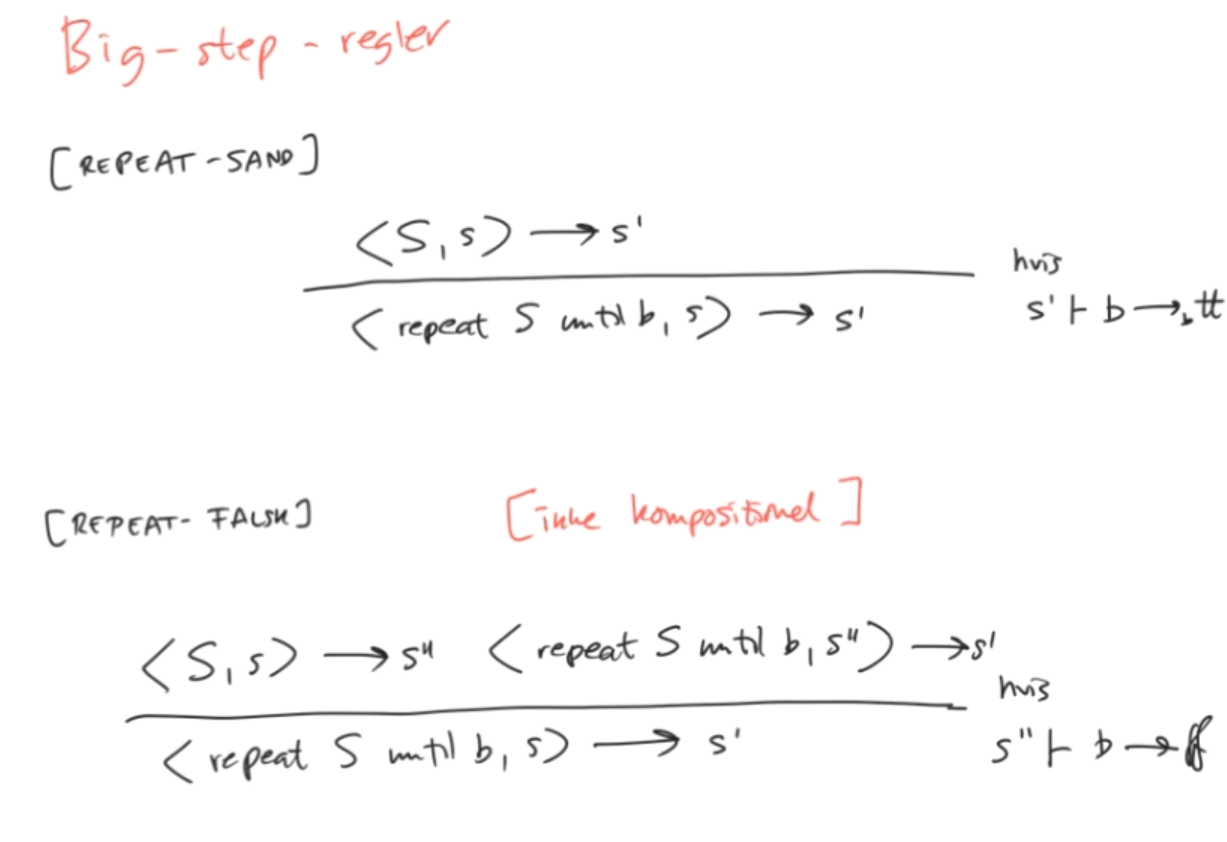 Big-step-regler
[REPEAT-SAND]
<S, s> → s'
hvis
<repeat S until b, s> → s'
s' ⊢ b →b tt
[REPEAT-FALSK]   [ikke kompositionel]
<S, s> → s''   <repeat S until b, s''> → s'
hvis
<repeat S until b, s> → s'
s'' ⊢ b → ff